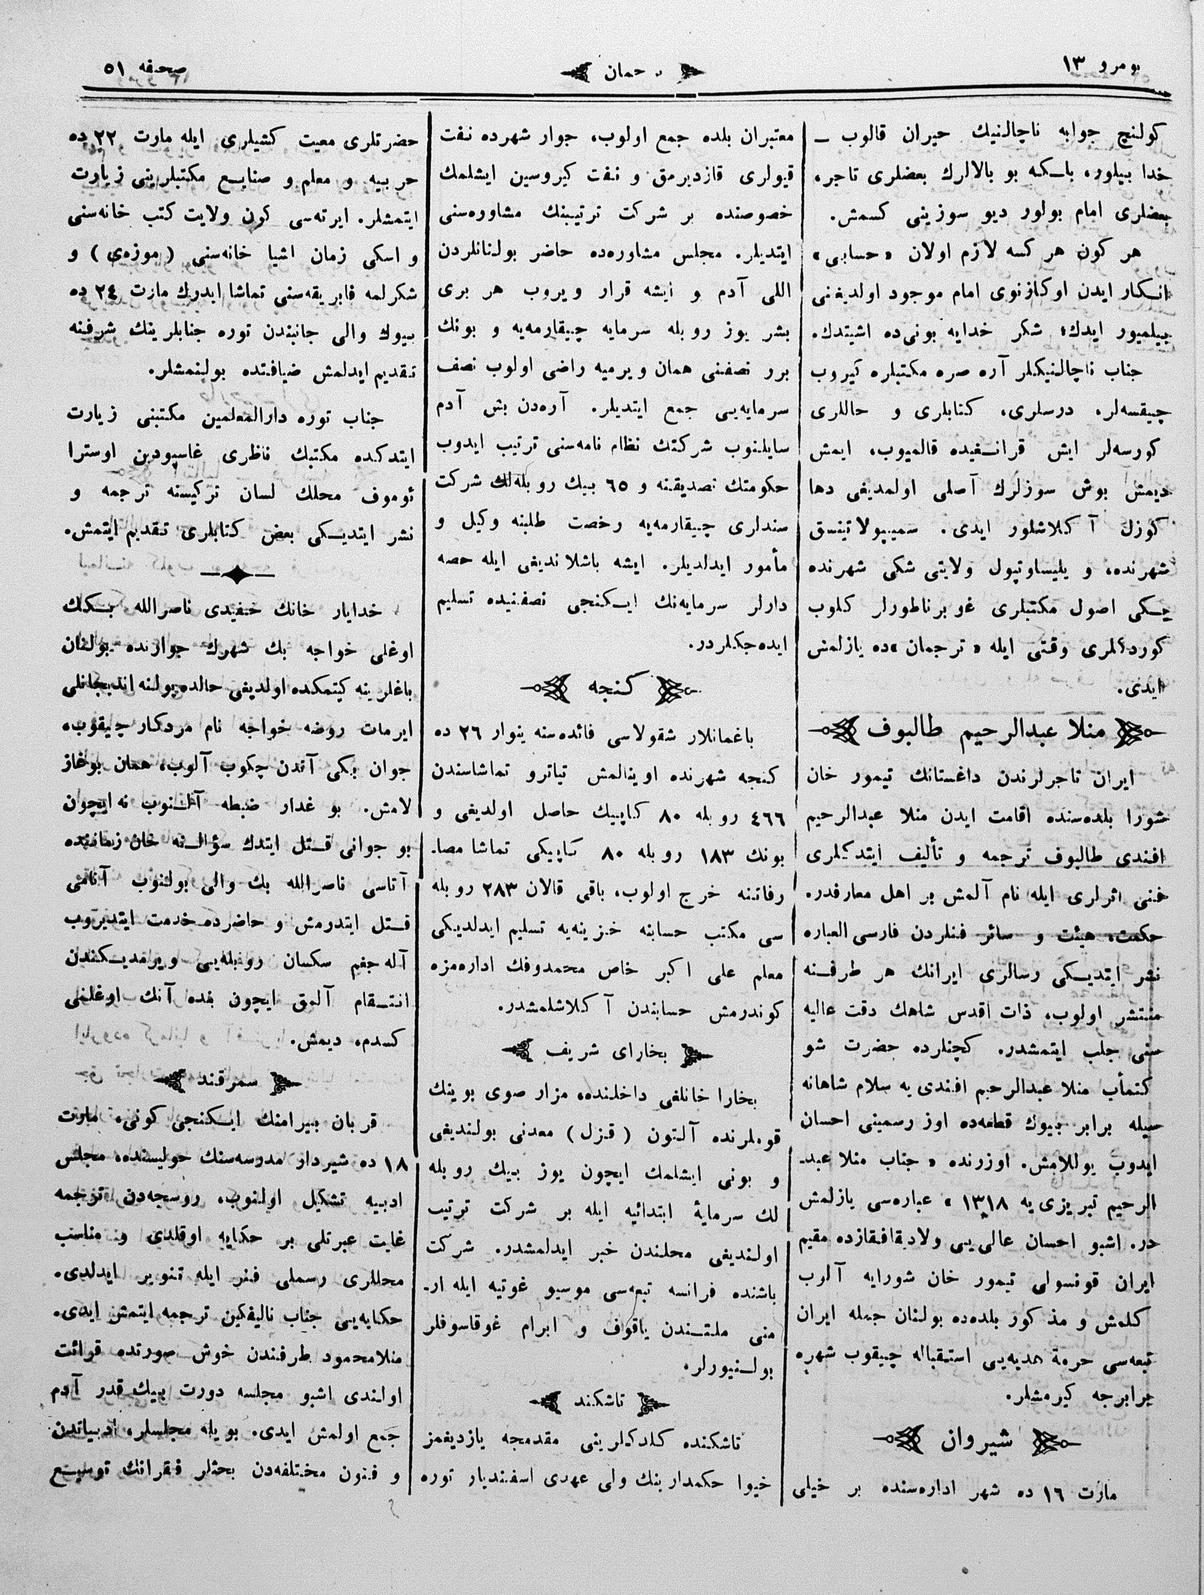 نومرو ١٣
ترجمان
صحیفه ٥١
كولنچ جوابه ناچالنیك حیران قالوب ــ
خدا بیلور، باسكه بو بالالرك بعضلری تاجر،
بعضلری امام بولور دیو سوزینی كسمش.
هر كون هر كسه لازم اولان «حسابی»
انكار ایدن اوكازنوی امام موجود اولدیغنی
بیلمیور ایدك؛ شكر خدایه بونی‌ده اشیتدك.
جناب ناچالنیكلر آره صره مكتبلره كیروب
چیقسه‌لر، درسلری، كتابلری و حاللری
كورسه‌لر ایش قرانغیده قالمیوب، ایمش
دیمش بوش سوزلرك آصلی اولمدیغی دها
كوزل آكلاشلور ایدی. سمیپولاتینسق
شهرنده، و یلیساوتپول ولایتی شكی شهرنده
یكی اصول مكتبلری غوبرناطورلر كلوب
كوردكلری وقتی ایله «ترجمان»ده یازلمش
ایدی.
منلا عبدالرحیم طالبوف
ایران تاجرلرندن داغستانك تیمور خان
شورا بلده‌سنده اقامت ایدن منلا عبدالرحیم
افندی طالبوف ترجمه و تألیف ایتدكلری
فنی اثرلری ایله نام آلمش بر اهل معارفدر.
حكمت، هیئت و سائر فنلردن فارسی العباره
نشر ایتدیكی رسالری ایرانك هر طرفنه
منتشر اولوب، ذات اقدس شاهك دقت عالیه
سنی جلب ایتمشدر. كچنلرده حضرت شو
كتمأب منلا عبدالرحیم افندی یه سلام شاهانه
سیله برابر بیوك قطعه‌ده اوز رسمینی احسان
ایدوب یوللامش. اوزرنده «جناب منلا عبد
الرحیم تبریزی یه ١٣١٨» عباره‌سی یازلمش
در. اشبو احسان عالی‌یی ولادیقافقازده مقیم
ایران قونسولی تیمور خان شورایه آلوب
كلمش و مذكور بلده‌ده بولنان جمله ایران
تبعه‌سی حرمة هدیه‌یی استقباله چیقوب شهره
برابرجه كیرمشلر.
شیروان
مارت ١٦ ده شهر اداره‌سنده بر خیلی
معتبران بلده جمع اولوب، جوار شهرده نفت
قیولری قازدیرمق و نفت كیروسین ایشلمك
خصوصنده بر شركت ترتیبنك مشاوره‌سنی
ایتدیلر. مجلس مشاوره‌ده حاضر بولنانلردن
اللی آدم و ایشه قرار ویروب هر بری
بشر یوز روبله سرمایه چیقارمه‌یه و بونك
برو نصفنی همان ویرمیه راضی اولوب نصف
سرمایه‌یی جمع ایتدیلر. آره‌دن بش آدم
سایلنوب شركتك نظام نامه‌سنی ترتیب ایدوب
حكومتك تصدیقنه و ٦٥ بیك روبله‌لك شركت
سندلری چیقارمه‌یه رخصت طلبنه وكیل و
مأمور ایدلدیلر. ایشه باشلاندیغی ایله حصه
دارلر سرمایه‌نك ایكنجی نصفنیده تسلیم
ایده‌جكلردر.
كنجه
باغمانلار شقولاسی فائده‌سنه ینوار ٢٦ ده
كنجه شهرنده اوینالمش تیاترو تماشاسندن
٤٦٦ روبله ٨٠ كاپیك حاصل اولدیغی و
بونك ١٨٣ روبله ٨٠ كاپیكی تماشا مصا
رفاتنه خرج اولوب، باقی قالان ٢٨٣ روبله
سی مكتب حسابنه خزینه‌یه تسلیم ایدلدیكی
معلم علی اكبر خاص محمدوفك اداره‌مزه
كوندرمش حسابندن آكلاشلمشدر.
بخارای شریف
بخارا خانلغی داخلنده، مزار صوی بوینك
قوملرنده آلتون (قزل) معدنی بولندیغی
و بونی ایشلمك ایچون یوز بیك روبله
لك سرمایهٔ ابتدائیه ایله بر شركت ترتیب
اولندیغی محلندن خبر ایدلمشدر. شركت
باشنده فرانسه تبعه‌سی موسیو غوتیه ایله ار
منی ملتندن یاقواف و ابرام غوقاسوفلر
بولنیورلر.
تاشكند
تاشكنده كلدكلرینی مقدمجه یازدیغمز
خیوا حكمدارینك ولی عهدی اسفندیار توره
حضرتلری معیت كشیلری ایله مارت ٢٢ ده
حربیه و معلم و صنایع مكتبلرینی زیارت
ایتمشلر. ایرته‌سی كون ولایت كتب خانه‌سنی
و اسكی زمان اشیا خانه‌سنی (موزه‌ی) و
شكرلمه فابریقه‌سنی تماشا ایدرك مارت ٢٤ ده
بیوك والی جانبندن توره جنابلرینك شرفنه
تقدیم ایدلمش ضیافتده بولنمشلر.
جناب توره دارالمعلمین مكتبنی زیارت
ایتدكده مكتبك ناظری غاسپودین اوسترا
ئوموف محلك لسان تركیسنه ترجمه و
نشر ایتدیكی بعض كتابلری تقدیم ایتمش.
خدایار خانك حفیدی ناصرالله بكك
اوغلی خواجه بك شهرك جوارنده بولنان
باغلرینه كیتمكده اولدیغی حالده یولنه اندیجانلی
ایرمات روضه خواجه نام مردكار چیقوب،
جوان بكی آتدن چكوب آلوب، همان بوغاز
لامش. بو غدار ضبطه آلنوب نه ایچون
بو جوانی قتل ایتدك سؤالنه خان زماننده
آتاسی ناصرالله بك والی بولنوب آنامی
قتل ایتدرمش و حاضرده خدمت ایتدیروب
آله جغم سكسان روبله‌یی ویرمدیكندن
انتقام آلمق ایچون بنده آنك اوغلنی
كسدم، دیمش.
سمرقند
قربان بیرامنك ایكنجی كونی، مارت
١٨ ده شیردار مدرسه‌سنك حولیسنده، مجلس
ادبیه تشكیل اولنوب، روسجه‌دن ترجمه
غایت عبرتلی بر حكایه اوقلدی و مناسب
محللری رسملی فنر ایله تنویر ایدلدی.
حكایه‌یی جناب نالیفكین ترجمه ایتمش ایدی.
منلامحمود طرفندن خوش صورتده قرائت
اولندی اشبو مجلسه دورت بیك قدر آدم
جمع اولمش ایدی. بویله مجلسلر، ادبیاتدن
و فنون مختلفه‌دن بحثلر فقرانك توسیع